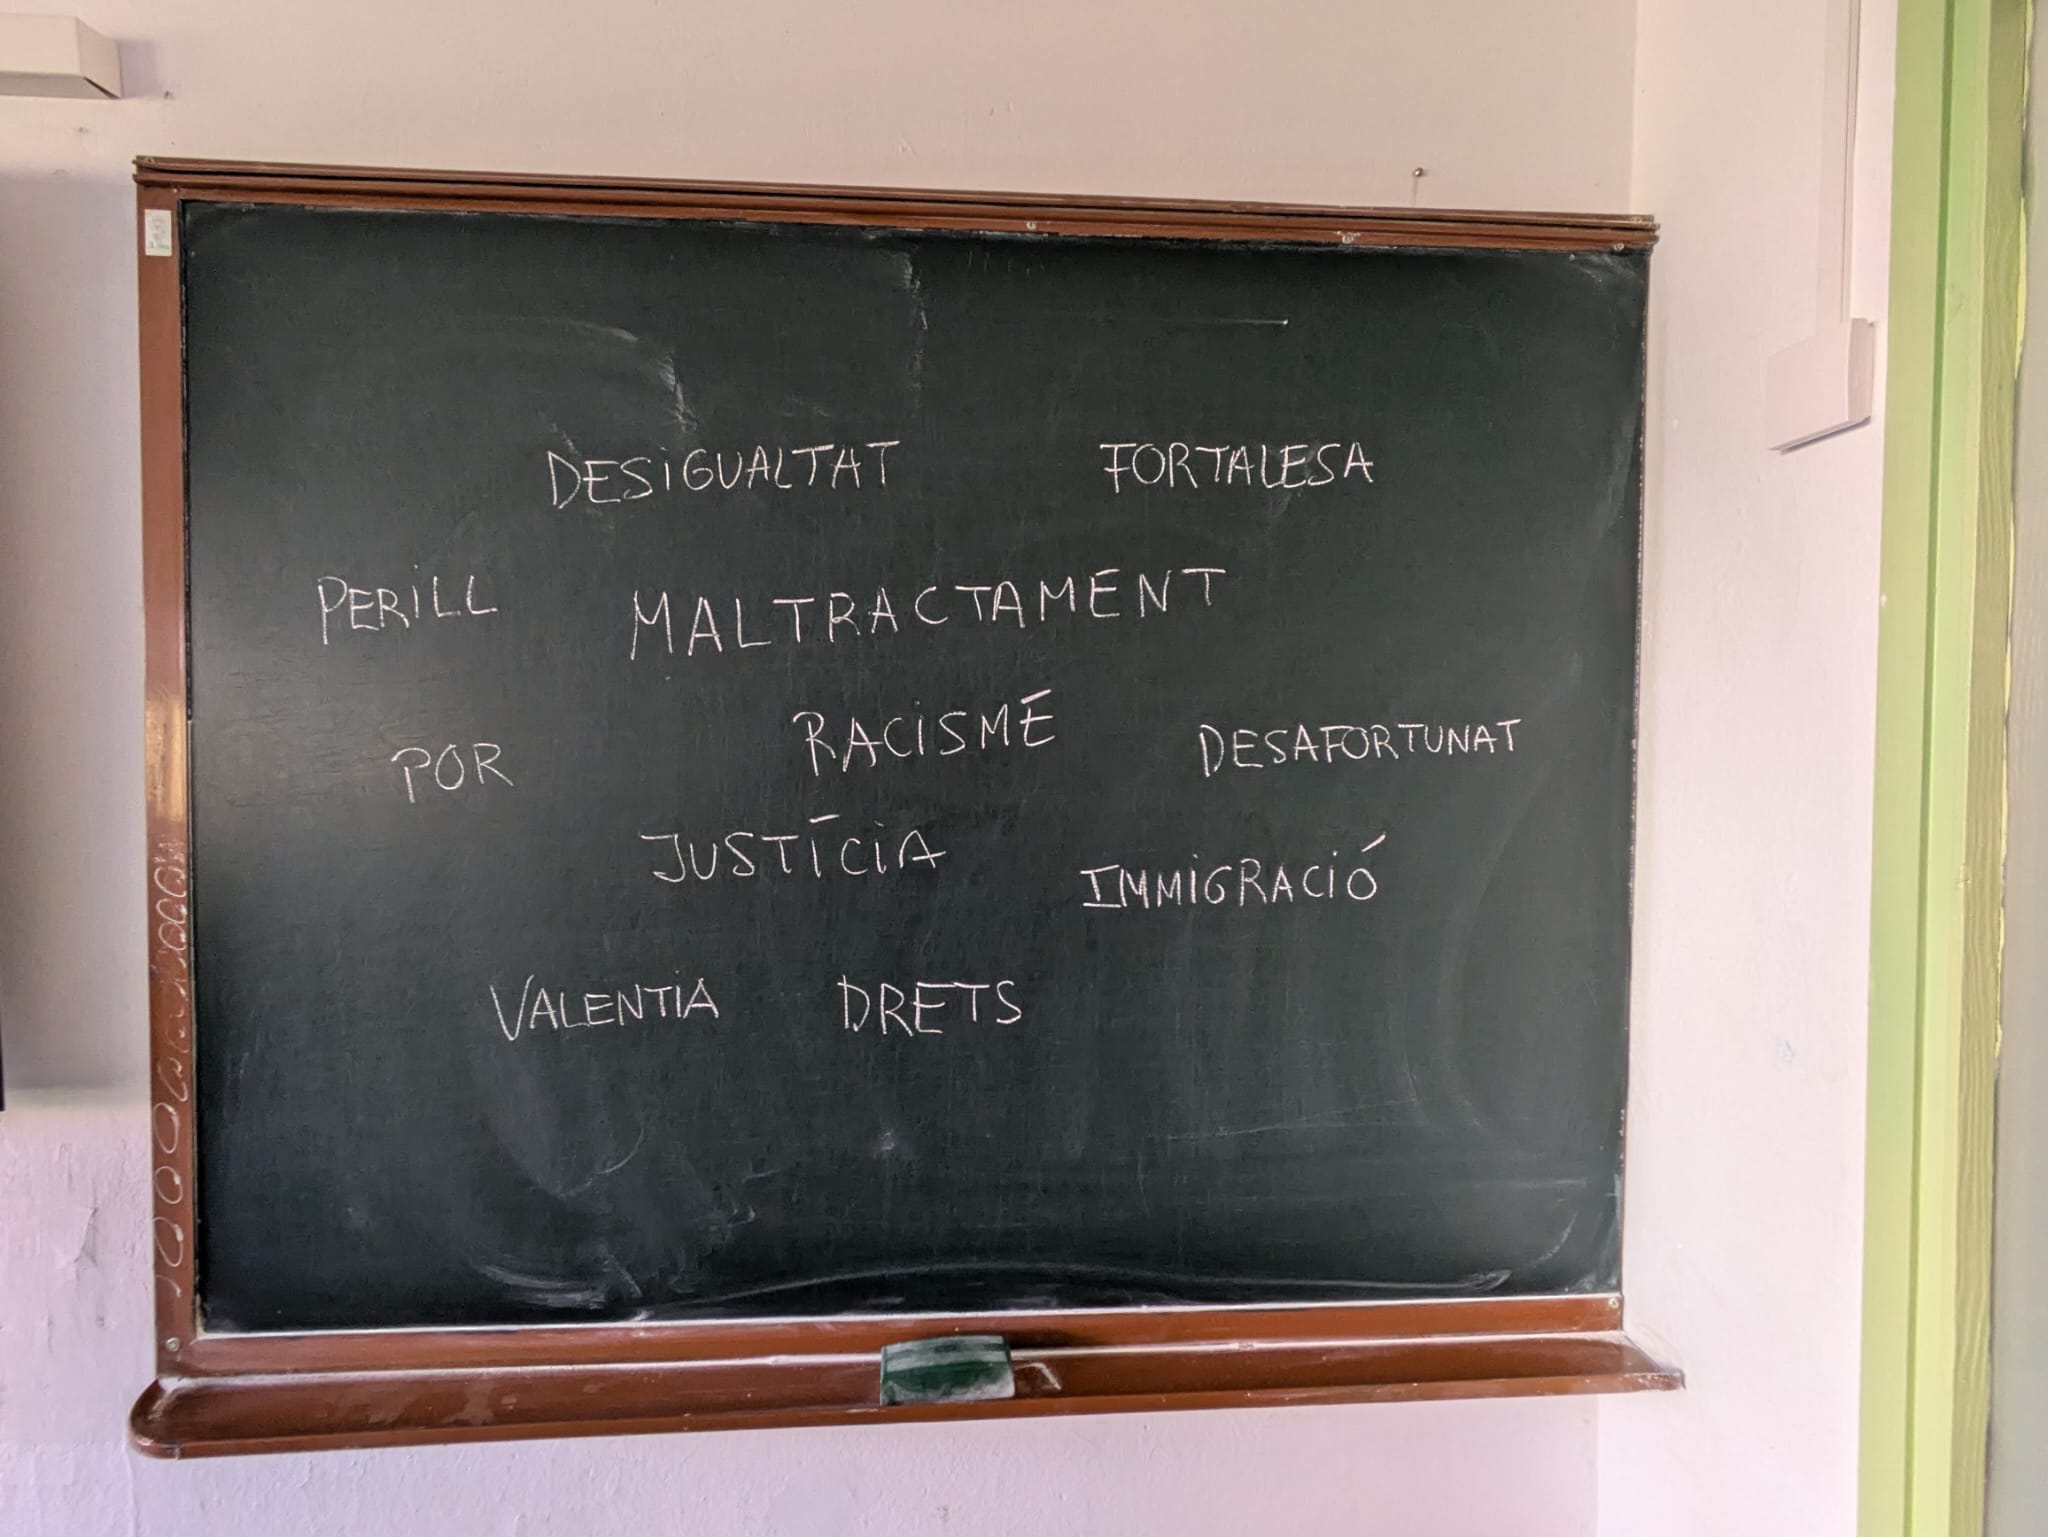 DESIGUALTAT FORTALESA
PERILL MALTRACTAMENT
POR RACISME DESAFORTUNAT
JUSTÍCIA IMMIGRACIÓ
VALENTIA DRETS